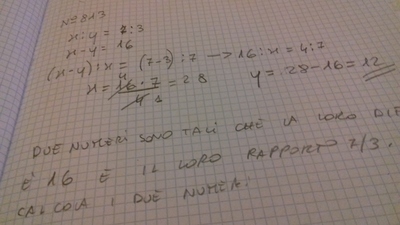 N=813
x:y = 7:3
x-y= 16
(x-y):x = (7-3):7 → 16:x = 4:7
x = 16·7 / 4 = 28 y = 28-16 = 12
4
1
DUE NUMERI SONO TALI CHE LA LORO
È 16 E IL LORO RAPPORTO 7/3.
CALCOLA I DUE NUMERI